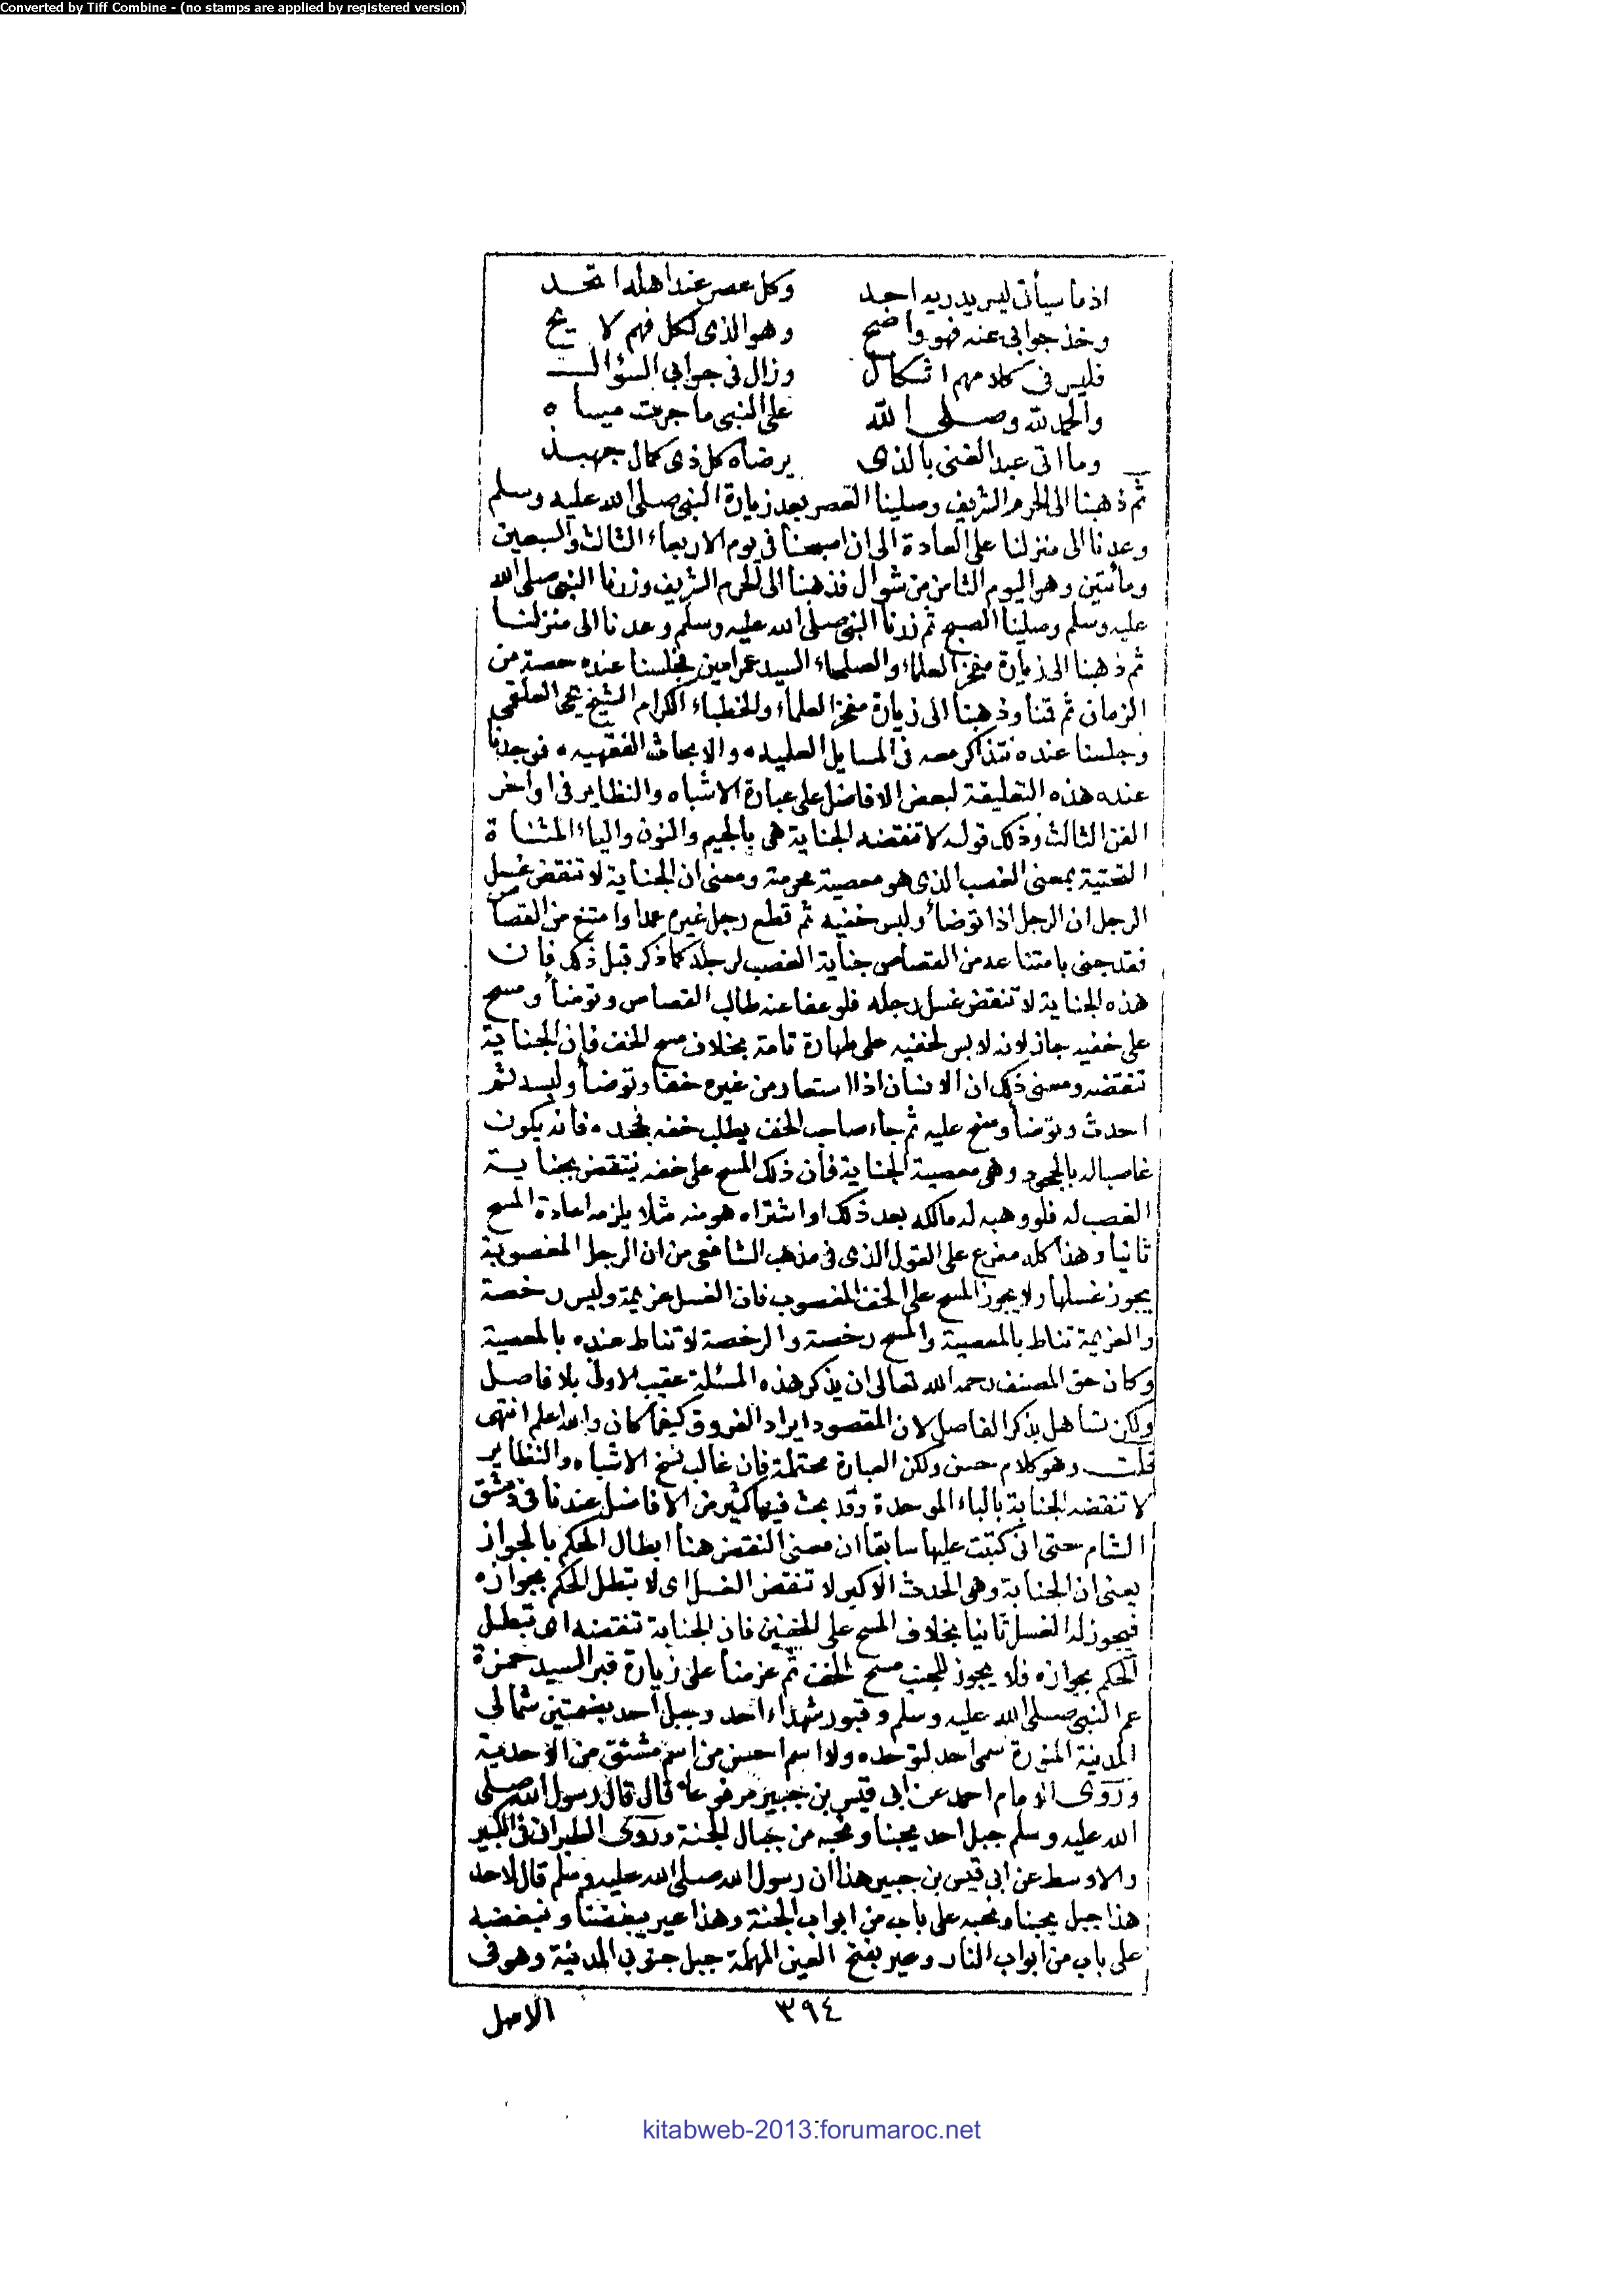 Converted by Tiff Combine - (no stamps are applied by registered version)
اذ ما سيأتى ليس يدريه احد وكل عصر عند اهله اتحد
وخذ جوابى عنه فهو واضح وهو الذى لكل فهم لايح
فليس فى كلامهم اشكال وزال فى جوابى السؤال
والحمد لله وصلى الله على النبى ما جرت مياه
وما اتى عبد الغنى بالذى يرضاه كل ذى كمال جهبذ
ثم ذهبنا الى الحرم الشريف وصلينا العصر بعد زيارة النبى صلى الله عليه وسلم
وعدنا الى منزلنا على العادة الى ان اصبحنا فى يوم الاربعاء الثالث والسبعين
ومائتين وهو اليوم الثامن من شوال فذهبنا الى الحرم الشريف وزرنا النبى صلى الله
عليه وسلم وصلينا الصبح ثم زرنا النبى صلى الله عليه وسلم وعدنا الى منزلنا
ثم ذهبنا الى زيارة مفخر العلماء والصلحاء السيد عمر امين فجلسنا عنده حصة من
الزمان ثم قمنا وذهبنا الى زيارة مفخر العلماء والخطباء الكرام الشيخ يحيى العلقمى
وجلسنا عنده نتذاكر معه فى المسايل العلميه والابحاث الفقهيه فوجدنا
عنده هذه التعليقة لبعض الافاضل على عبارة الاشباه والنظاير فى اواخر
الفن الثالث وذلك قوله لا تنقضه الجناية هى بالجيم والنون والياء المثناة
التحتية بمعنى الغصب الذى هو معصية محرمة ومعنى ان الجناية لا تنقض غسل
الرجل ان الرجل اذا توضأ ولبس خفيه ثم قطع رجل غيره عمدا وامتنع من القصاص
فقد جنى بامتناعه من القصاص جناية الغصب لرجله كما ذكر قبل ذلك فان
هذه الجناية لا تنقض غسل رجله فلو عفا عنه طالب القصاص وتوضأ ومسح
على خفيه جاز لانه لابس لخفيه على طهارة تامة بخلاف مسح الخف فان الجناية
تنقضه ومعنى ذلك ان الانسان اذا استعار من غيره خفا وتوضأ ولبسه ثم
احدث وتوضأ ومسح عليه ثم جاء صاحب الخف يطلب خفه فجحده فانه يكون
غاصبا له بالجحود وهى معصية الجناية فان ذلك المسح على خفه ينتقض بجناية
الغصب له فلو وهبه له مالكه بعد ذلك او اشتراه هو منه مثلا يلزمه اعادة المسح
ثانيا وهذا كله مفرع على القول الذى فى مذهب الشافعى من ان الرجل المغصوبة
يجوز غسلها ولا يجوز المسح على الخف المغصوب فان الغسل عزيمة وليس رخصة
والعزيمة تناط بالمعصية والمسح رخصة والرخصة لا تناط عنده بالمعصية
وكان حق المصنف رحمه الله تعالى ان يذكر هذه المسئلة عقيب الاولى بلا فاصل
ولكن تساهل بذكر الفاصل لان المقصود ايراد الفروق كيفما كان والله اعلم انتهى
قلت وهو كلام حسن ولكن العبارة محتملة فان غالب نسخ الاشباه والنظاير
لا تنقضه الجنابة بالباء الموحدة وقد بحث فيها كثير من الافاضل عندنا فى دمشق
الشام حتى انى كتبت عليها سابقا ان معنى النقض هنا ابطال الحكم بالجواز
يعنى ان الجنابة وهى الحدث الاكبر لا تنقض الغسل اى لا تبطل الحكم بجوازه
فيجوز له الغسل ثانيا بخلاف المسح على الخفين فان الجنابة تنقضه اى تبطل
الحكم بجوازه فلا يجوز للجنب مسح الخف ثم عزمنا على زيارة قبر السيد حمزة
عم النبى صلى الله عليه وسلم وقبور شهداء احد وجبل احد بضمتين شمالى
المدينة المنورة سمى احد لتوحده ولا اسم احسن من اسم مشتق من الاحدية
وروى الامام احمد عن ابى قيس بن جبير مرفوعا قال قال رسول الله صلى
الله عليه وسلم جبل احد يحبنا ونحبه من جبال الجنة وروى الطبرانى فى الكبير
والاوسط عن ابى قيس بن جبير هذا ان رسول الله صلى الله عليه وسلم قال لاحد
هذا جبل يحبنا ونحبه على باب من ابواب الجنة وهذا عير يبغضنا ونبغضه
على باب من ابواب النار وعير بفتح العين المهملة جبل جنوبى المدينة وهو فى
٣٩٤
الاصل
kitabweb-2013.forumaroc.net